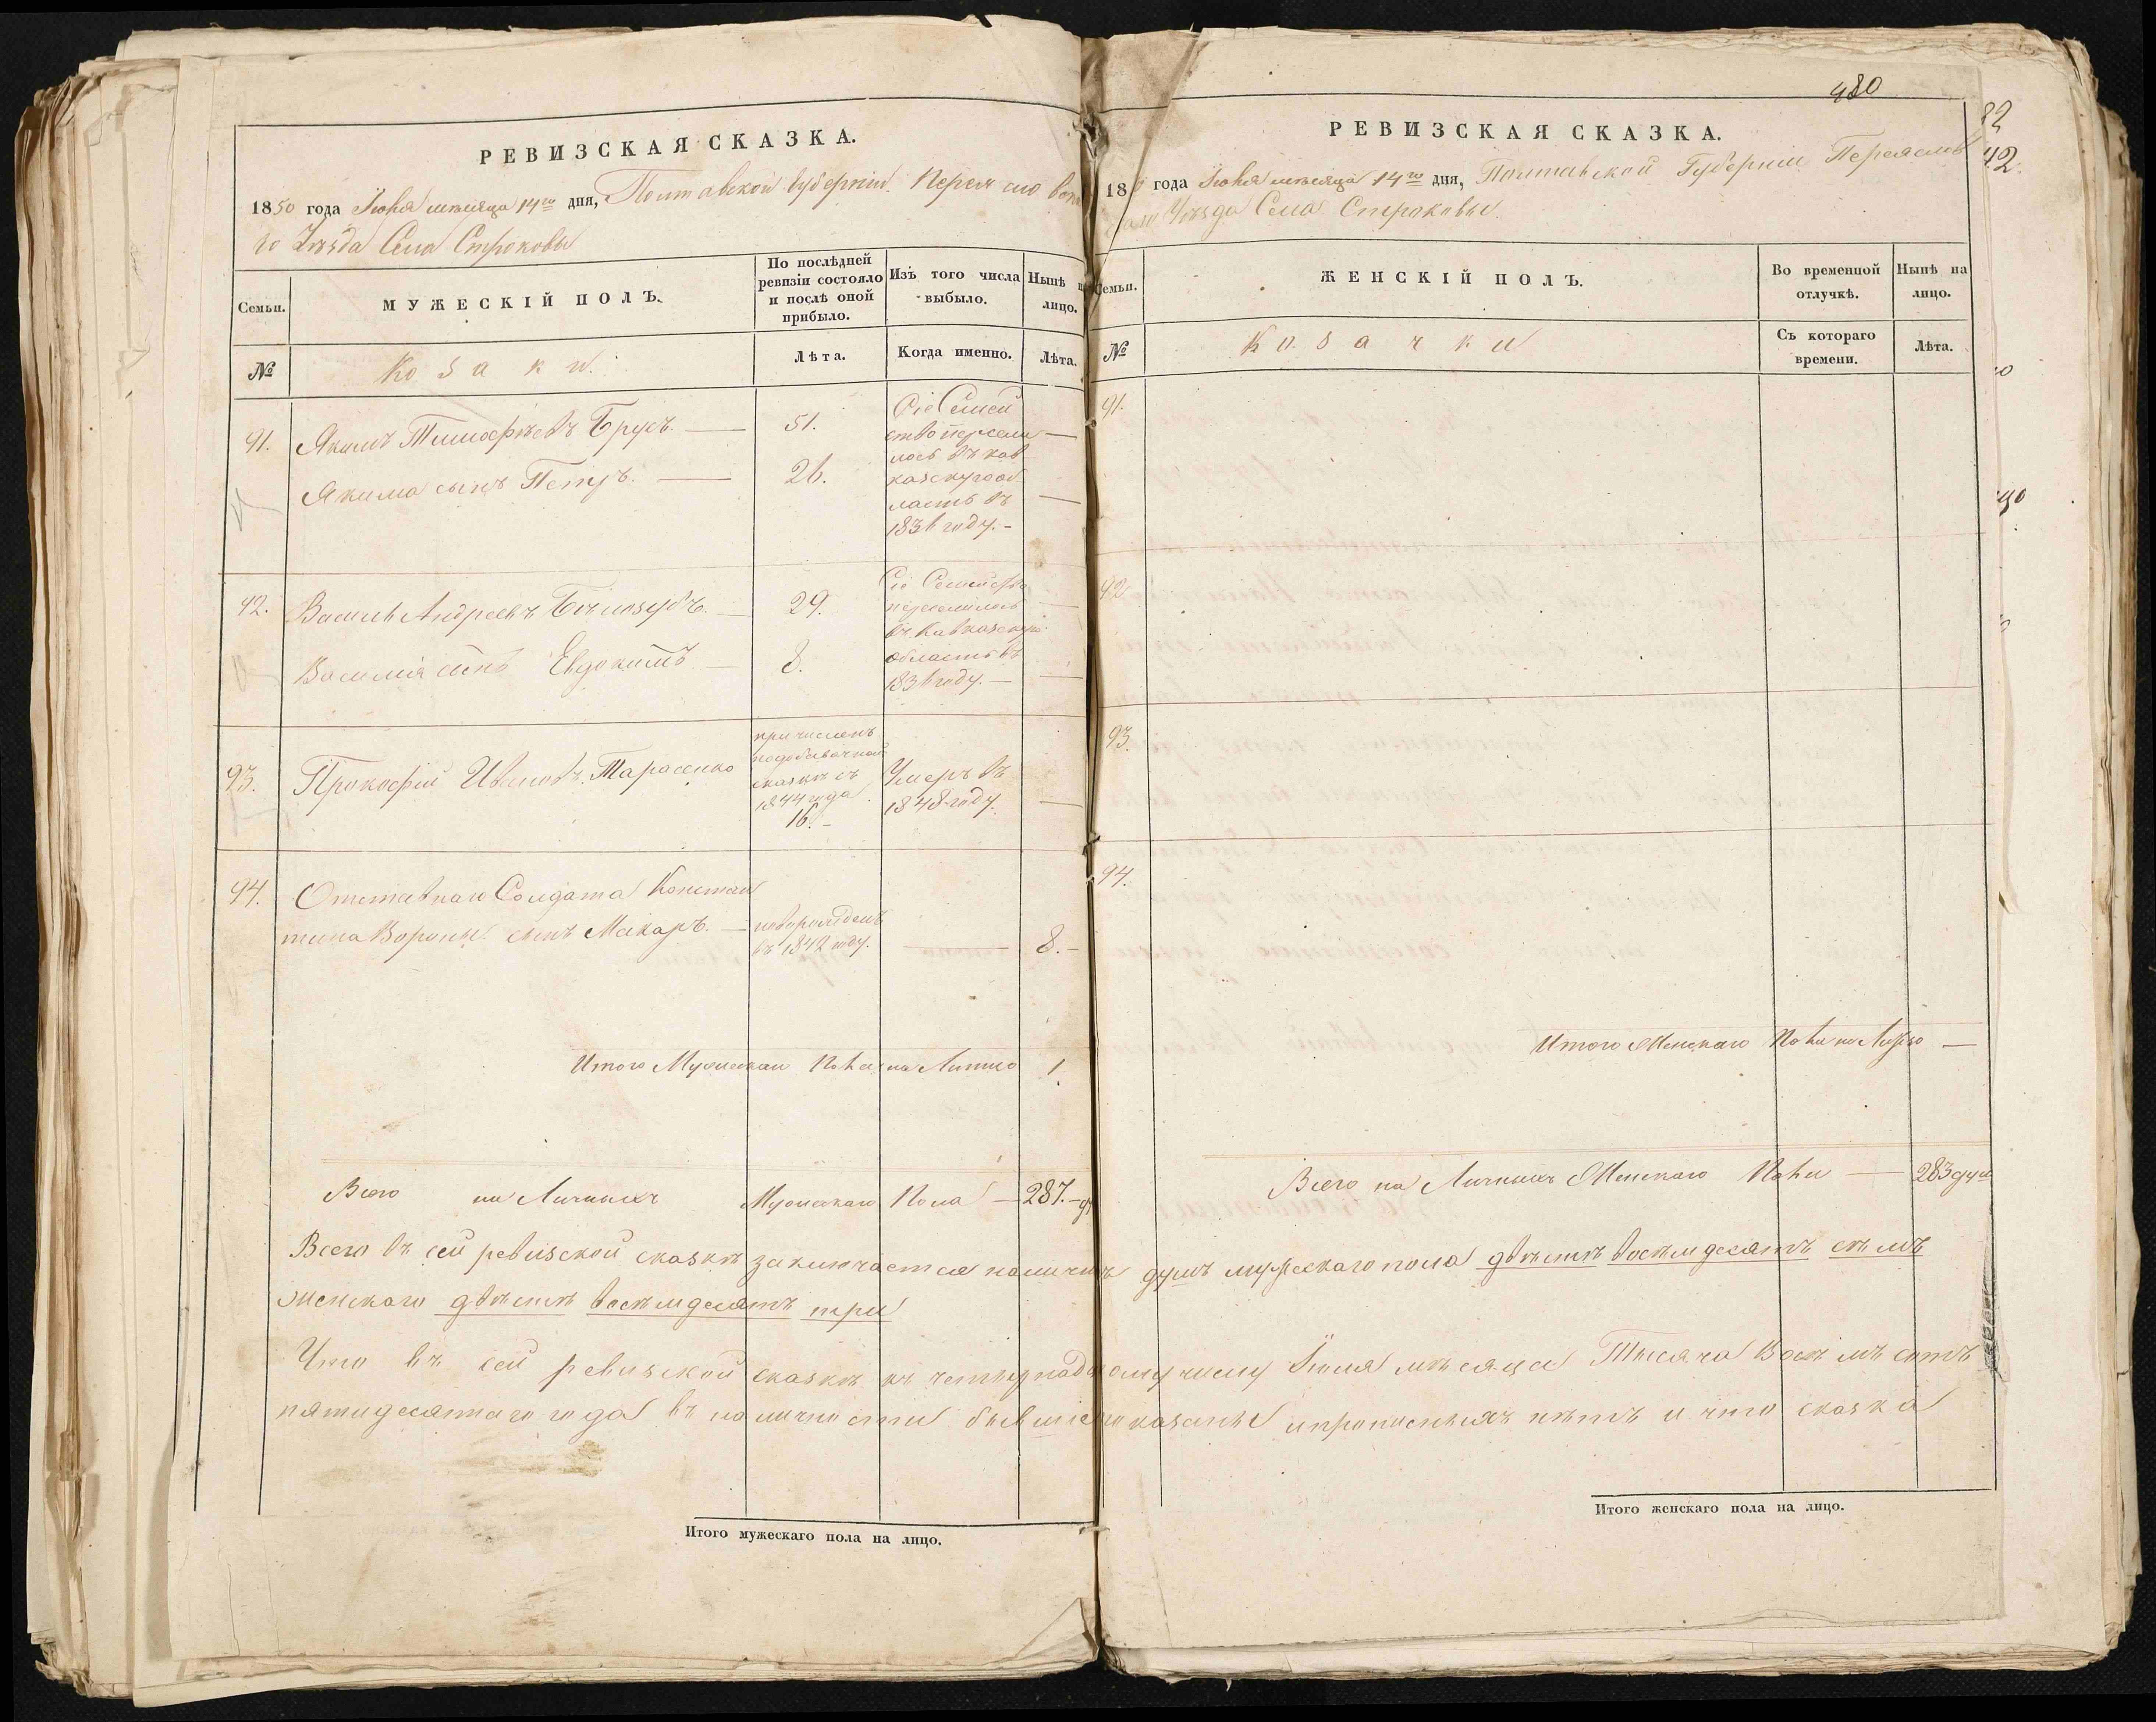 РЕВИЗСКАЯ СКАЗКА.
1850 года Іюля мѣсяца 14го дня, Полтавской Губерніи Переяславска
го Уѣзда Села Строковы
Семьи.
МУЖЕСКІЙ ПОЛЪ.
По послѣдней
ревизіи состояло
и послѣ оной
прибыло.
Изъ того числа
выбыло.
Нынѣ на
лицо.
№
Козаки.
Лѣта.
Когда именно.
Лѣта.
91. Якимъ Тимофѣевъ Брусъ. — 51.
Якима сынъ Петръ. — 26.
Сіе Семей
ство пересели
лось въ кав
казскую об
ласть въ
1836 году. -
92. Василь Андреевъ Бѣлозубъ. — 29.
Василія сынъ Евдокимъ — 8.
Сіе Семейство
переселилось
въ Кавказскую
область въ
1836 году. —
93. Прокофій Ивановъ Тарасенко
причисленъ
по добавочной
сказкѣ съ
1844 года
16. -
Умеръ въ
1848 году.
94. Отставнаго Солдата Констан
тина Вороны сынъ Макаръ. —
новорожденъ
въ 1842 году.
— 8. -
Итого Мужескаго Пола на Лицо 1.
Всего на Личныхъ Мужескаго Пола — 287. -
480
РЕВИЗСКАЯ СКАЗКА.
185 года Іюля мѣсяца 14го дня, Полтавской Губерніи Переяслав
Уѣзда Села Строковы.
Семьи.
ЖЕНСКІЙ ПОЛЪ.
Во временной
отлучкѣ.
Нынѣ на
лицо.
№
Козачки
Съ котораго
времени.
Лѣта.
91.
92.
93.
94.
Итого Женскаго Пола на Лицо —
Всего на Личныхъ Женскаго Пола — 283 душ
Всего въ сей ревизской сказкѣ заключается наличныхъ душъ мужескаго пола двѣсти восемьдесятъ семь
женскаго двѣсти восемьдесятъ три
Что въ сей ревизской сказкѣ къ четырнадцатому числу Іюля мѣсяца Тысяча Восемь сотъ
пятидесятаго года въ наличности бывшіе показаны и прописныхъ нѣтъ и что сказка
Итого мужескаго пола на лицо.
Итого женскаго пола на лицо.
82
42.